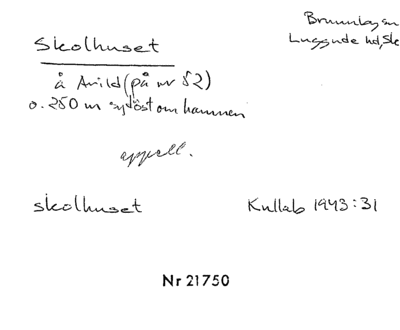 Brunnby sn
Luggude hd, Sk
Skolhuset
å Arild (på nr 52)
o. 250 m sydöst om hamnen
appell.
skolhuset
Kullab 1943:31
Nr 21750